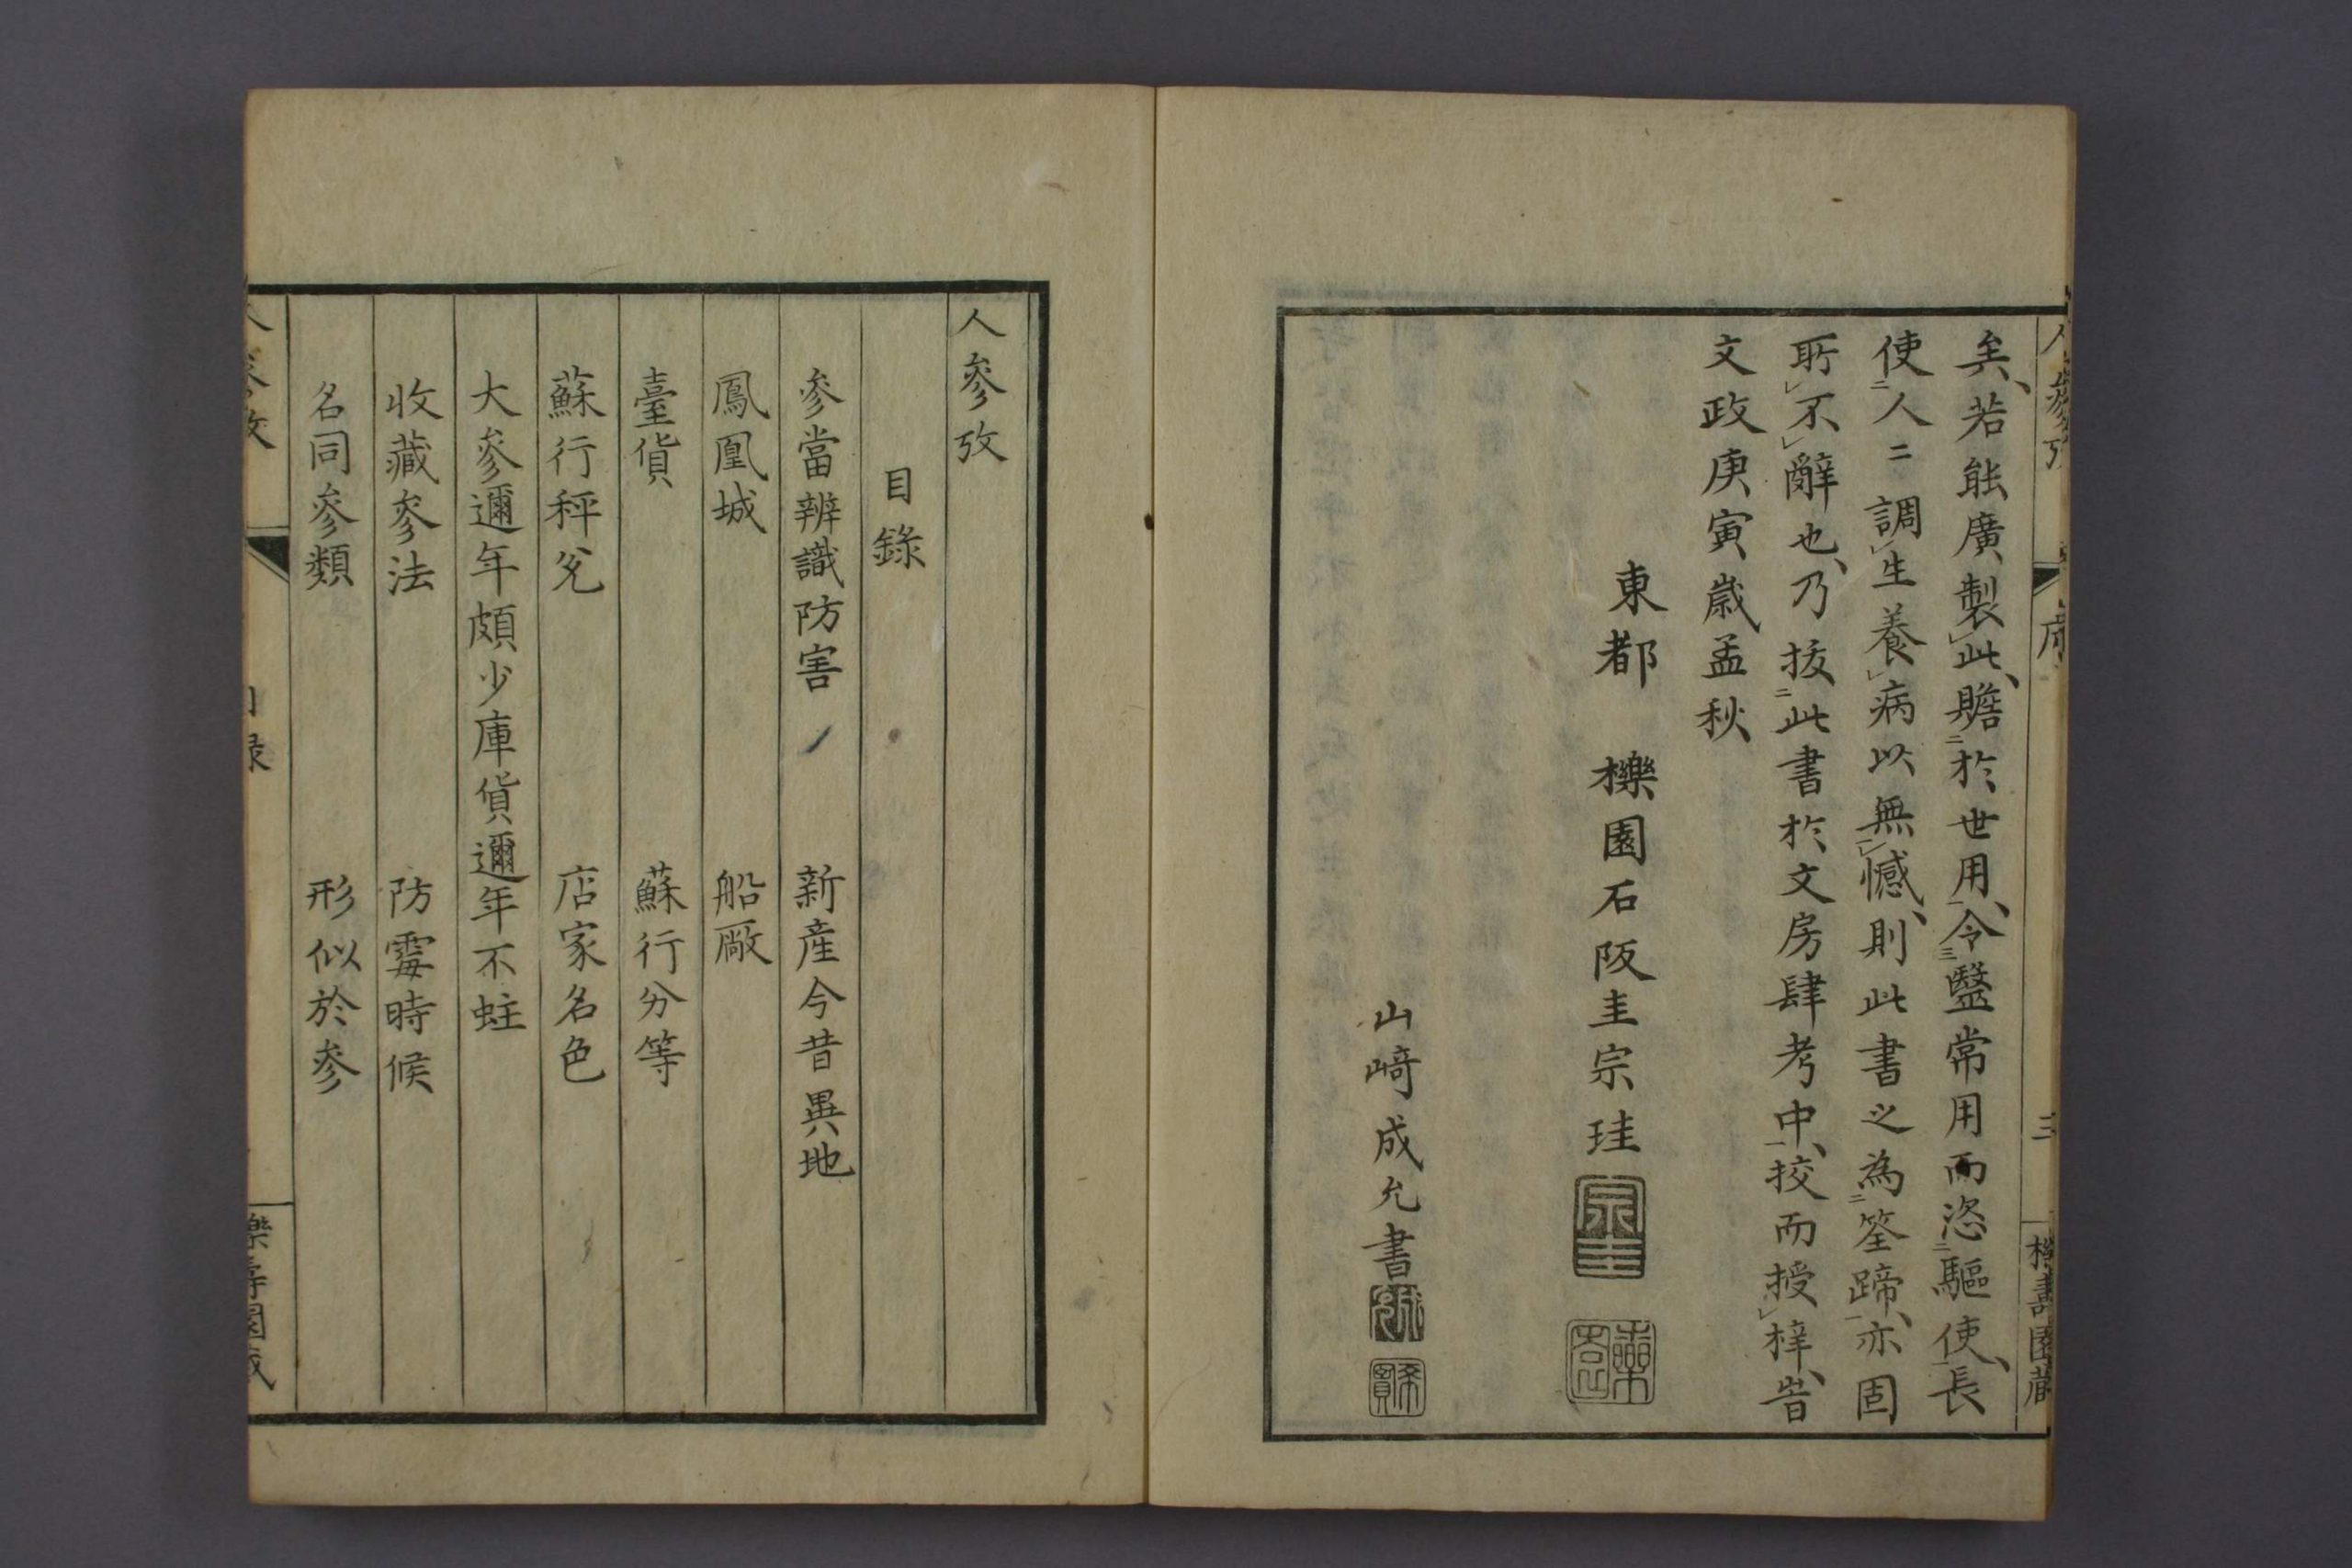 矣、若能廣製此、贍於世用、令醫常用而恣驅使、長
使人二調生養病以無憾、則此書之為筌蹄、亦固
所不辭也、乃抜此書於文房肆考中、挍而授梓、旹
文政庚寅歲孟秋
東都 櫟園石阪圭宗珪
山﨑成允書
人參攷
序
三
櫟壽園藏
人參攷
目錄
參當辨識防害 新產今昔異地
鳳凰城 船廠
臺貨 蘇行分等
蘇行秤兌 店家名色
大參邇年頗少庫貨邇年不蛀
收藏參法 防霉時候
名同參類 形似於參
人參攷
目錄
櫟壽園藏